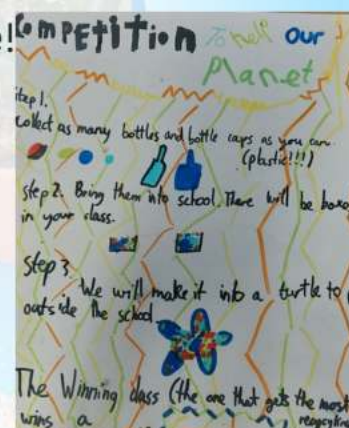 e!
Competition To help our
Planet
step 1.
Collect as many bottles and bottle caps as you can.
(plastic!!!)
step 2. Bring them into school. There will be boxes
in your class.
Step 3
We will make it into a turtle to
outside the school
The Winning class (the one that gets the most
wins a